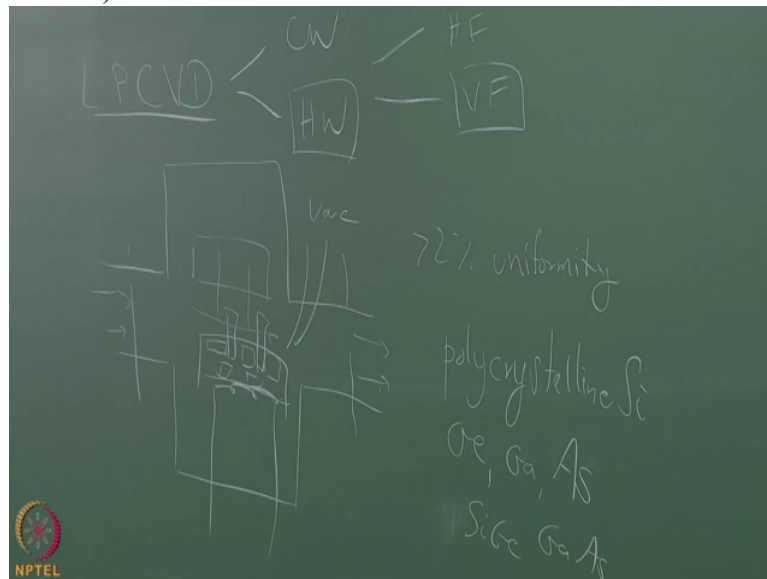 CW HF
LPCVD
HW VF
Vac
>2% uniformity
polycrystalline Si
Ge, Ga, As
SiGe GaAs
NPTEL